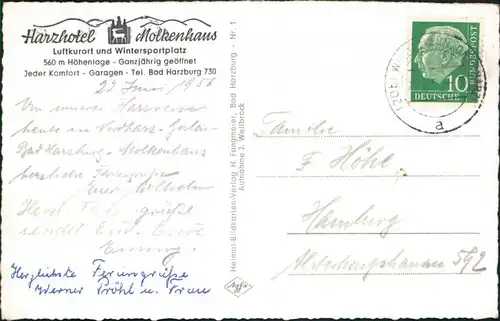 Harzhotel Molkenhaus
Luftkurort und Wintersportplatz
560 m Höhenlage - Ganzjährig geöffnet
Jeder Komfort - Garagen - Tel. Bad Harzburg 730
22 Juni 1958
Von unserer Harzreise
heute im
Bad Harzburg - Molkenhaus
herzliche Feriengrüße
Euer Wilhelm
Herzl. grüße
sendet
Herzlichste Feriengrüße
Werner Pröhl u. Frau
Heimat-Bildkarten-Verlag H. Fangmeier, Bad Harzburg - Nr. 1
Aufnahme J. Wellbrock
Agfa
DEUTSCHE BUNDESPOST
10
a
Familie
F Höhe
Hamburg
592